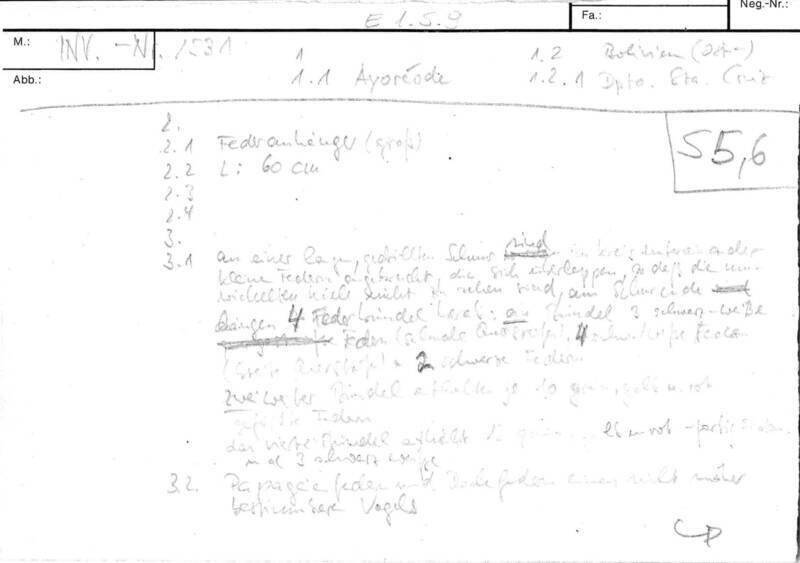 E 1.5.9
Neg.-Nr.:
Fa.:
M.: INV. -Nr. 1531
Abb.:
1
1.1 Ayoréode
1.2 Bolivien (Ost-)
1.2.1 Dpto. Sta. Cruz
55,6
2.
2.1 Federanhänger (groß)
2.2 L: 60 cm
2.3
2.4
3.
3.1 an einer langen, gedrillten Schnur sind im Kreis untereinander
kleine Federn angebracht, die sich überlappen, so daß die um-
wickelten Kiele nicht zu sehen sind, am Schnurende
hängen 4 Federbündel herab: an Bündel 3 schwarz-weiße
Federn (schmale Querstreifen), 4 schw./weiße Federn
(breite Querstreifen) 2 schwarze Federn
zwei weitere Bündel enthalten je 10 grün, gelb u. rot
gefärbte Federn
das vierte Bündel enthält 12 u. rot
und 3 schwarz weiße
3.2. Papageifedern und Federn eines nicht näher
bestimmbaren Vogels